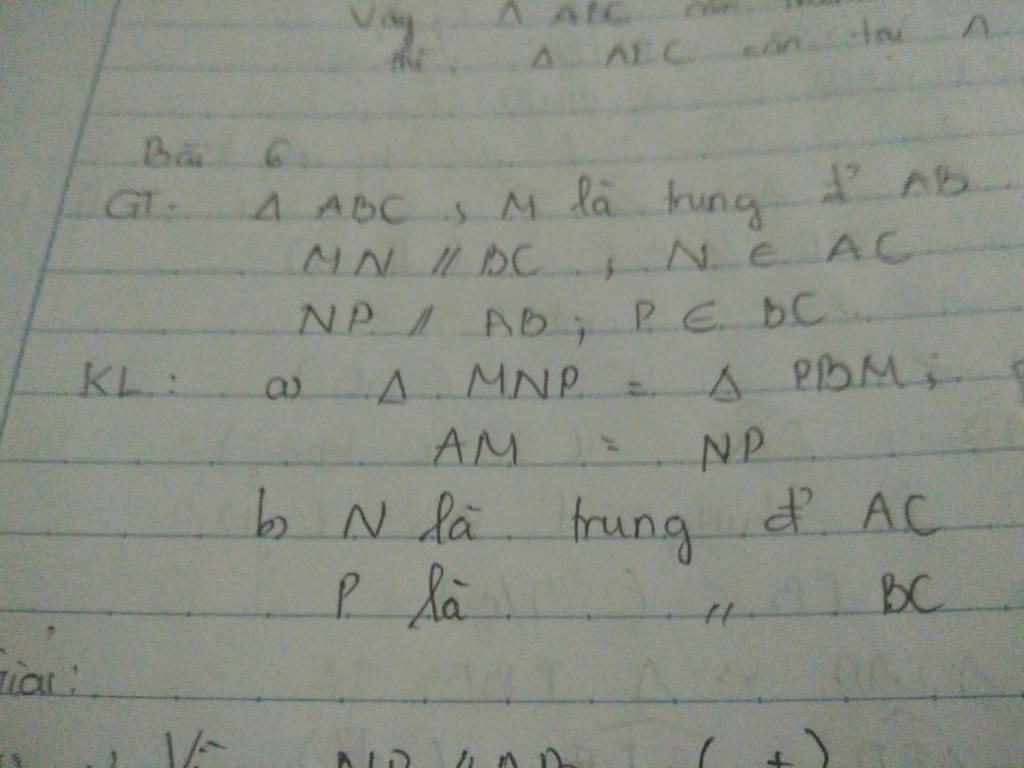 Vậy Δ AEC cân
thì Δ AEC cân tại A
Bài 6:
GT: Δ ABC ; M là trung đ' AB
MN // BC ; N ∈ AC
NP // AB ; P ∈ BC
KL: a) Δ MNP = Δ PBM ;
AM = NP
b) N là trung đ' AC
P là " BC
Giải:
Vì NP // AB (gt)